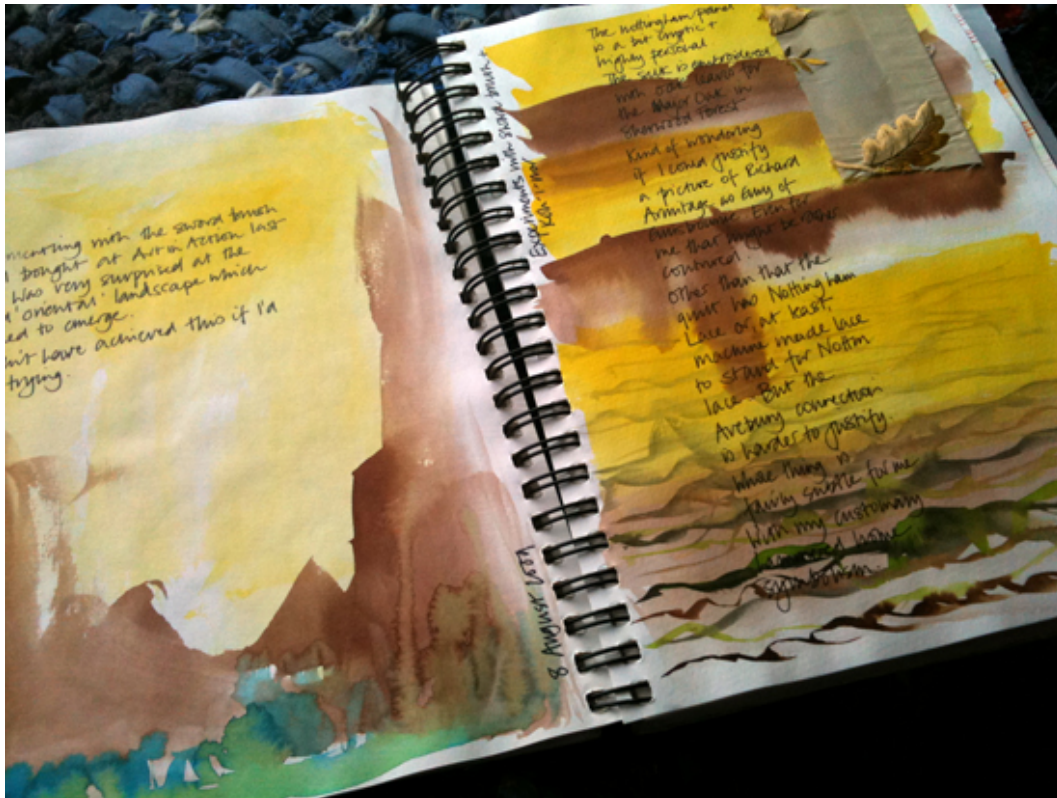 menting with the sword brush
bought at Art in Action last
was very surprised at the
"oriental" landscape which
ed to emerge.
n't have achieved this if I'd
trying.
8 August 2009
Experiments with sword brush +
The Nottingham panel
is a bit cryptic +
highly personal
The silk is embroidered
with oak leaves for
the Major Oak in
Sherwood Forest
Kind of wondering
if I could justify
a picture of Richard
Armitage as Guy of
Gisbourne. Even for
me that might be rather
contrived.
Other than that the
quilt has Nottingham
Lace or, at least,
machine made lace
to stand for Nottm
lace. But the
Avebury connection
is harder to justify.
whole thing is
fairly subtle for me
with my customary
home
symbolism.